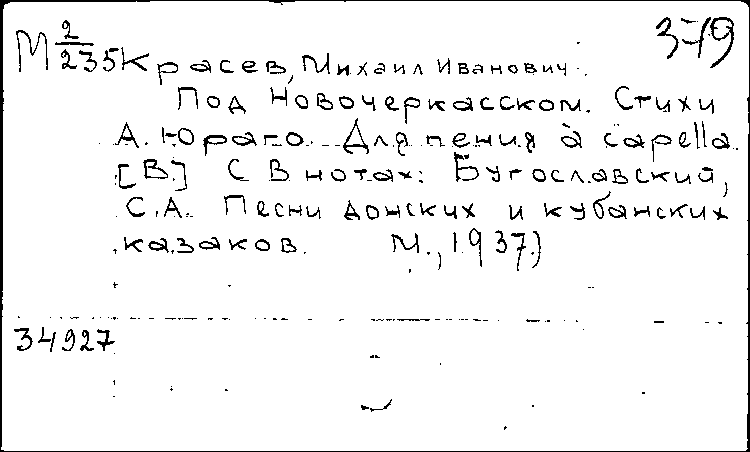 379
М 2/235 Красев, Михаил Иванович.
Под Новочеркасском. Стихи
А. Юраго. Для пения à capella.
[В.] (В нотах: Бугославский,
С.А. Песни донских и кубанских
казаков. М., 1937.)
34927